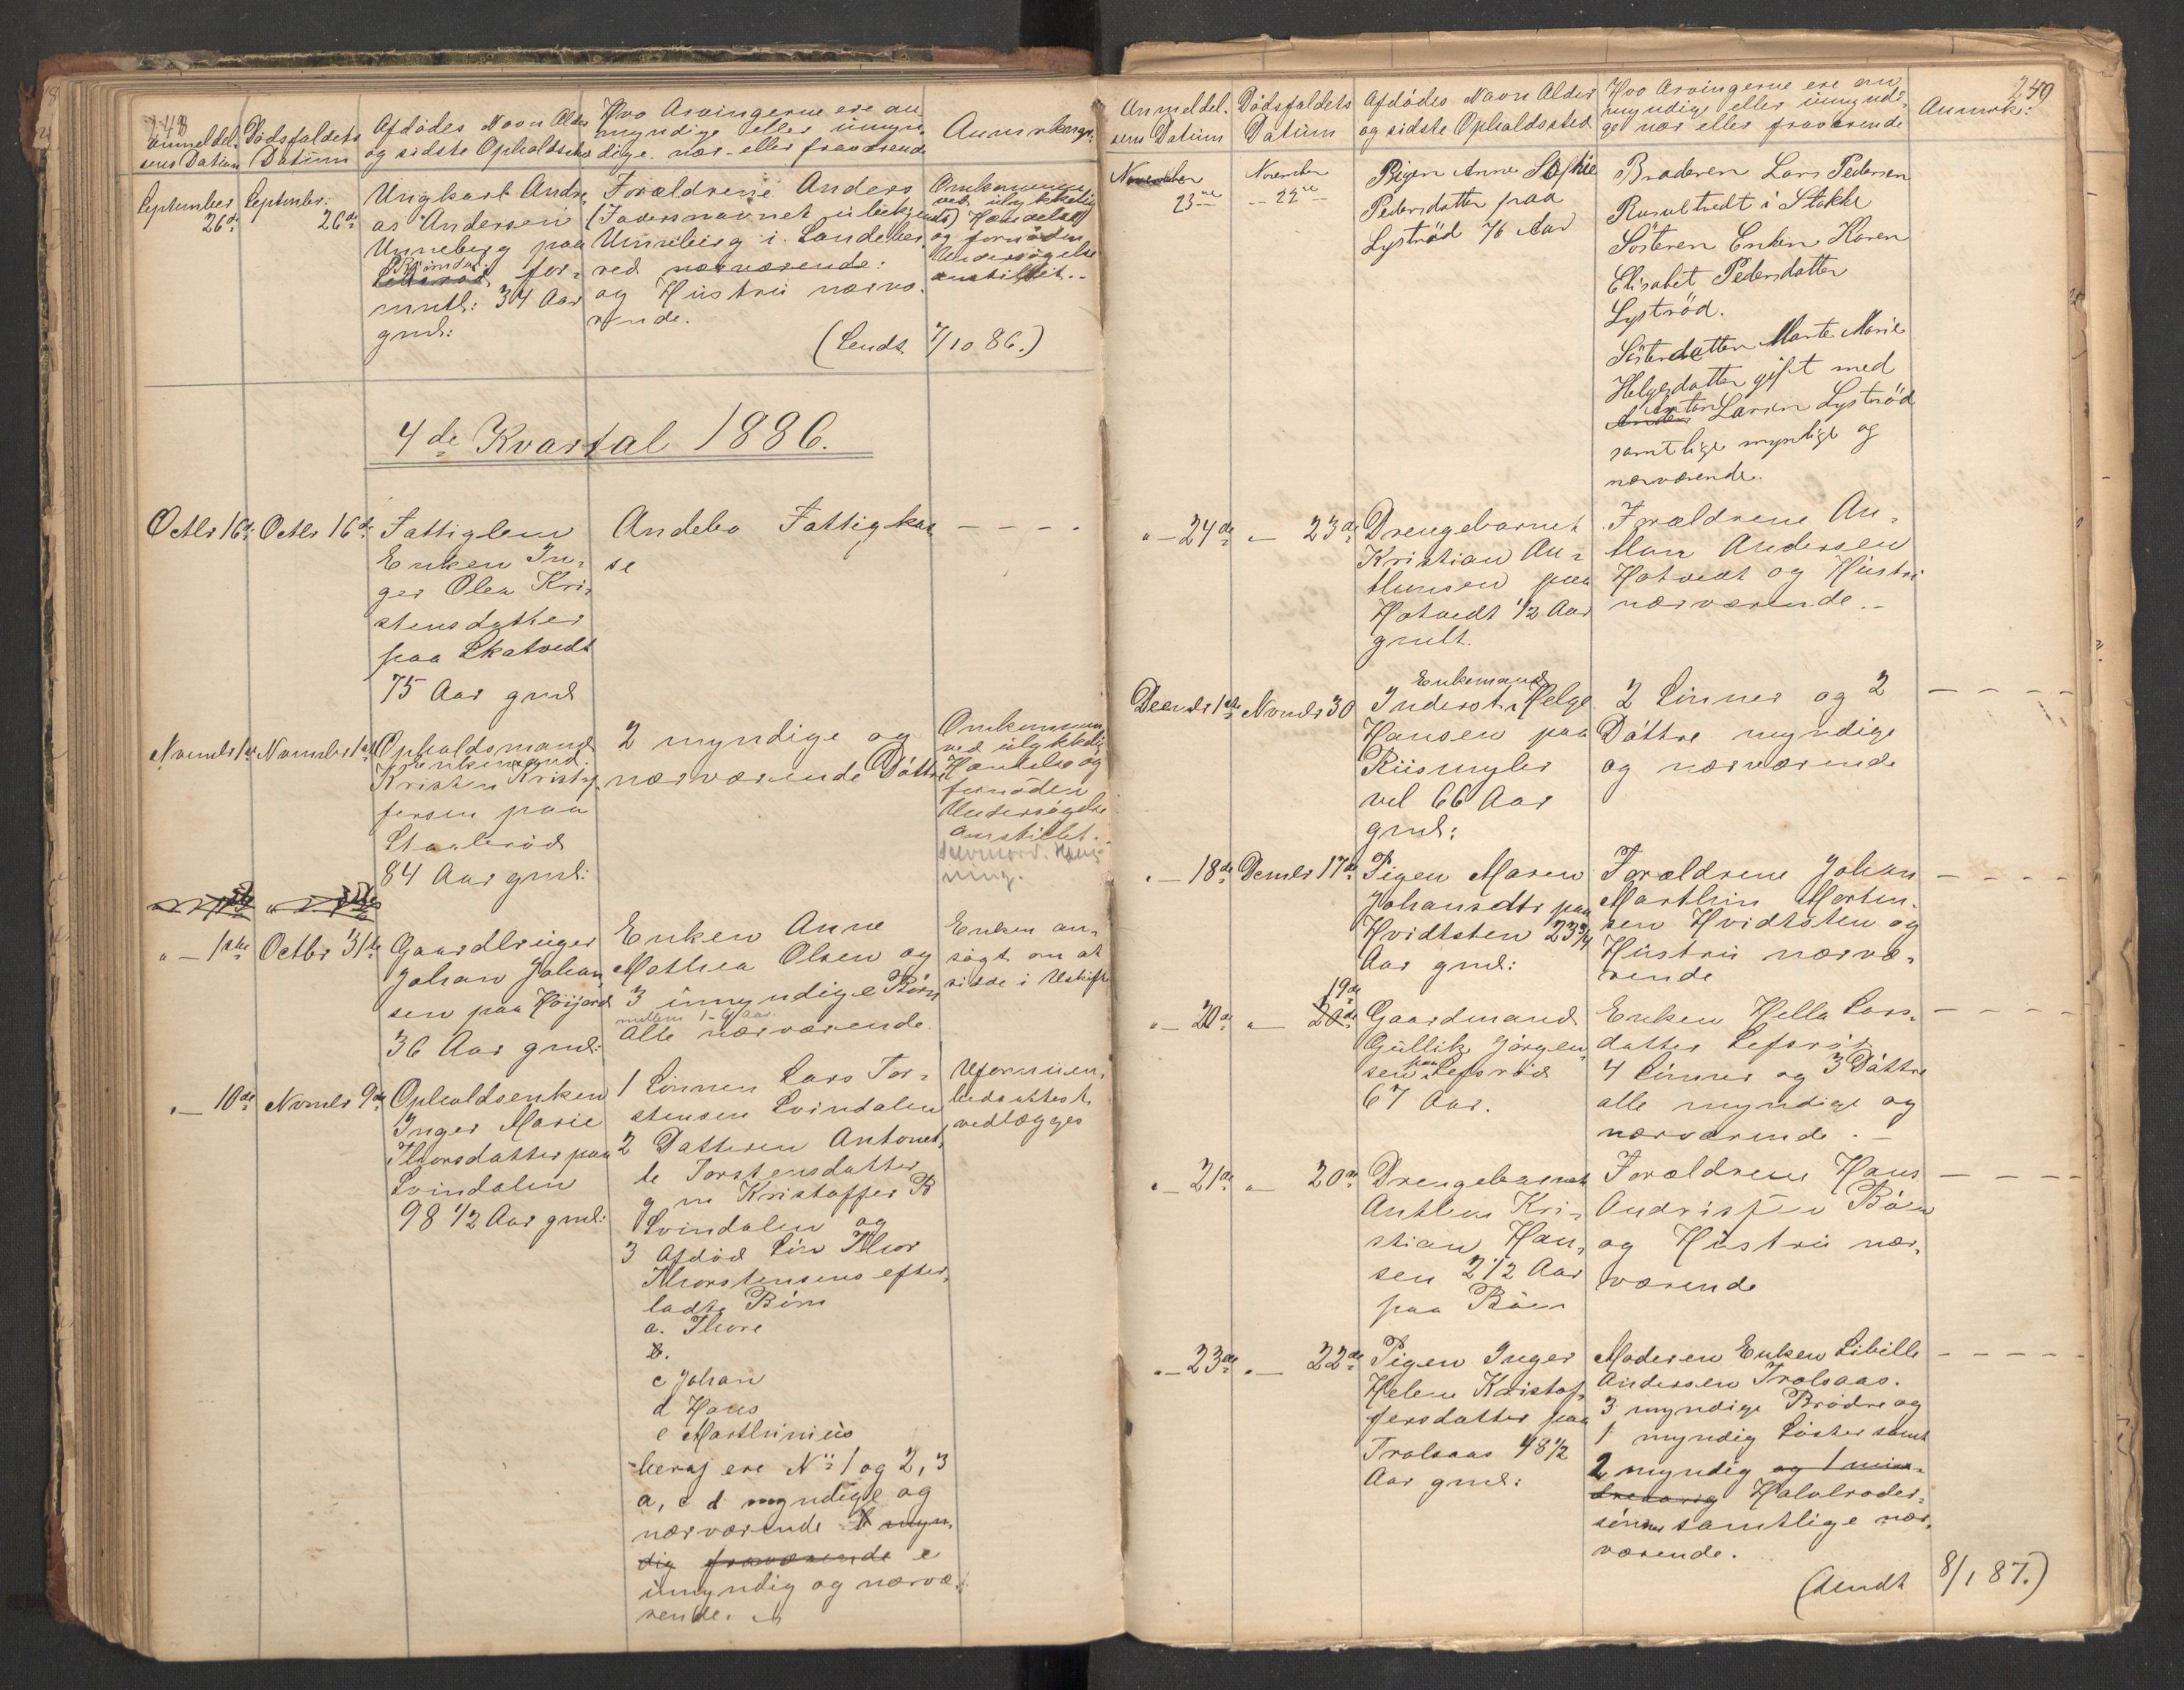 248
Anmeldel-
sens Datum
Dödsfaldets
Datum
Afdödes Navn Alder
og sidste Opholdssted
Hvo Arvingerne ere om
myndige eller umyn-
dige. nær- eller fraværende
Anmerkngr.
September
26de
September
26de
Ungkarl Andre
as Andersen
Unneberg paa
for-
mntl: 34 Aar
gml:
Forældrene Anders
(Faversnavnet ubekjendt)
Unneberg i Sandeher
red nærværende:
og Hüstrü nærvæ-
rende.
Omkommen
ved ulykkelig
Hændelse
og fornöden
Undersögelse
anstillet.-
(Sendt 7/10 86.)
4de Kvartal 1886.
Octbr 16de
Octbr 16de
Fattiglem
Enken In-
ger Olea Kri-
stensdatter
paa Skatvedt
75 Aar gml
Andebo Fattigkas
se
- - - -
Novmbr 1ste
Novmbr 1ste
Opholdsmand
Enkemand.
Kristen Kristof-
fersen paa
Staalerød
84 Aar gml:
2 myndige og
nærværende Döttre
Omkommen
ved ulykkelig
Hændelse og
fornöden
Undersögelse
anstillet.
Selvmord. Hæng-
ning.
" - 1ste
Octbr 31te
Gaardbruger
Johan Johan-
sen paa Höijord
36 Aar gml:
Enken Anne
Mathea Olsen og
3 ümyndige Börn
mellem 1-6 Aar.
Alle nærværende.
Enken an-
sögt om at
sidde i Uskifte
" - 10de
Novmbr 9de
Opholdsenken
Inger Marie
Thorsdatter paa
Svindalen
98 1/2 Aar gml:
1 Sönnen Lars Tor-
stensen Svindalen
2 Datteren Antonet-
te Torstensdatter
g m Kristoffer B
Svindalen og
3 Afdöd Sön Thor
Thorstensens efter-
ladte Börn
a. Thore
b.
c Johan
d Hans
e Marthinius
heraf ere No 1 og 2, 3
a, c d myndige og
nærværende b myn-
dig fraværende e
ümyndig og nærvæ-
rende.
Uformuen-
hedsattest
vedlægges
249
Anmeldel-
sens Datüm
Dödsfaldets
Datüm
Afdödes Navn Alder
og sidste Opholdssted
Hvo Arvingerne ere om
myndige eller ümyndi-
ge nær eller fraværende
Anmerk:
November
23de
November
22de
Pigen Anne Sofie
Pedersdatter paa
Lyströd 76 Aar
Broderen Lars Pedersen
i Stokke
Sösteren Enken Karen
Elisabet Pedersdatter
Lyströd.
Sösterdatter Marte Marie
Helgesdatter gift med
Anton
Larsen Lyströd
samtlige myndige og
nærværende.
" - 24de
" - 23de
Drengebarnet
Kristian An-
thunsen paa
Hotvedt 1/2 Aar
gmlt.
Forældrene An-
thon Andersen
Hotvedt og Hüstrü
nærværende.-
Decmbr 1ste
Novmbr 30
Enkemand
Inderst Helge
Hansen paa
Riismyhr
vel 66 Aar
gml:
2 Sönner og 2
Döttre myndige
og nærværende
- - - -
" - 18de
Decmbr 17de
Pigen Maren
Johansdtr paa
Hvidtsten 23 3/4
Aar gml:
Forældrene Johan
Marthin Morten-
sen Hvidtsten og
Hüstrü nærvæ-
rende
- - - -
" - 20de
19de
" - 20de
Gaardmand
Güllik Jörgen-
sen paa Lefsröd
67 Aar.
Enken Hella Lars-
datter Lefsröd
4 Sönner og 3 Döttre
alle myndige og
nærværende.-
- - - -
" - 21de
" - 20de
Drengebarnet
Anthon Kri-
stian Han-
sen 2 1/2 Aar
paa Böen
Forældrene Hans
Andersen Böen
og Hüstrü nær-
værende
- - - -
" - 23de
" - 22de
Pigen Inger
Helene Kristof-
fersdatter paa
Trolsaas 48 1/2
Aar gml:
Moderen Enken Sibille
Andersen Trolsaas.
3 myndige Brödre og
1 myndig Söster samt
2 myndig og 1 min-
dreaarig Halvbroder-
sönner samtlige nær-
værende.
- - - -
(Sendt 8/1 87.)